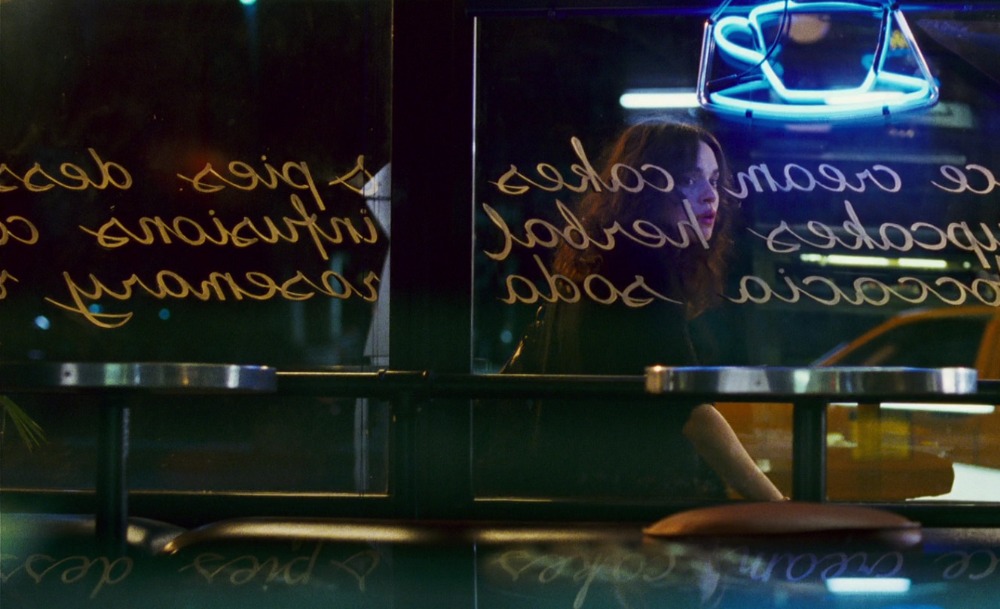 ce cream cakes s pies dess
upcakes herbal infusions co
occacia soda rosemary